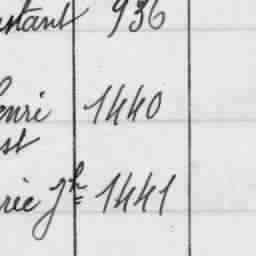 936
enri 1440
st
rie Jh 1441